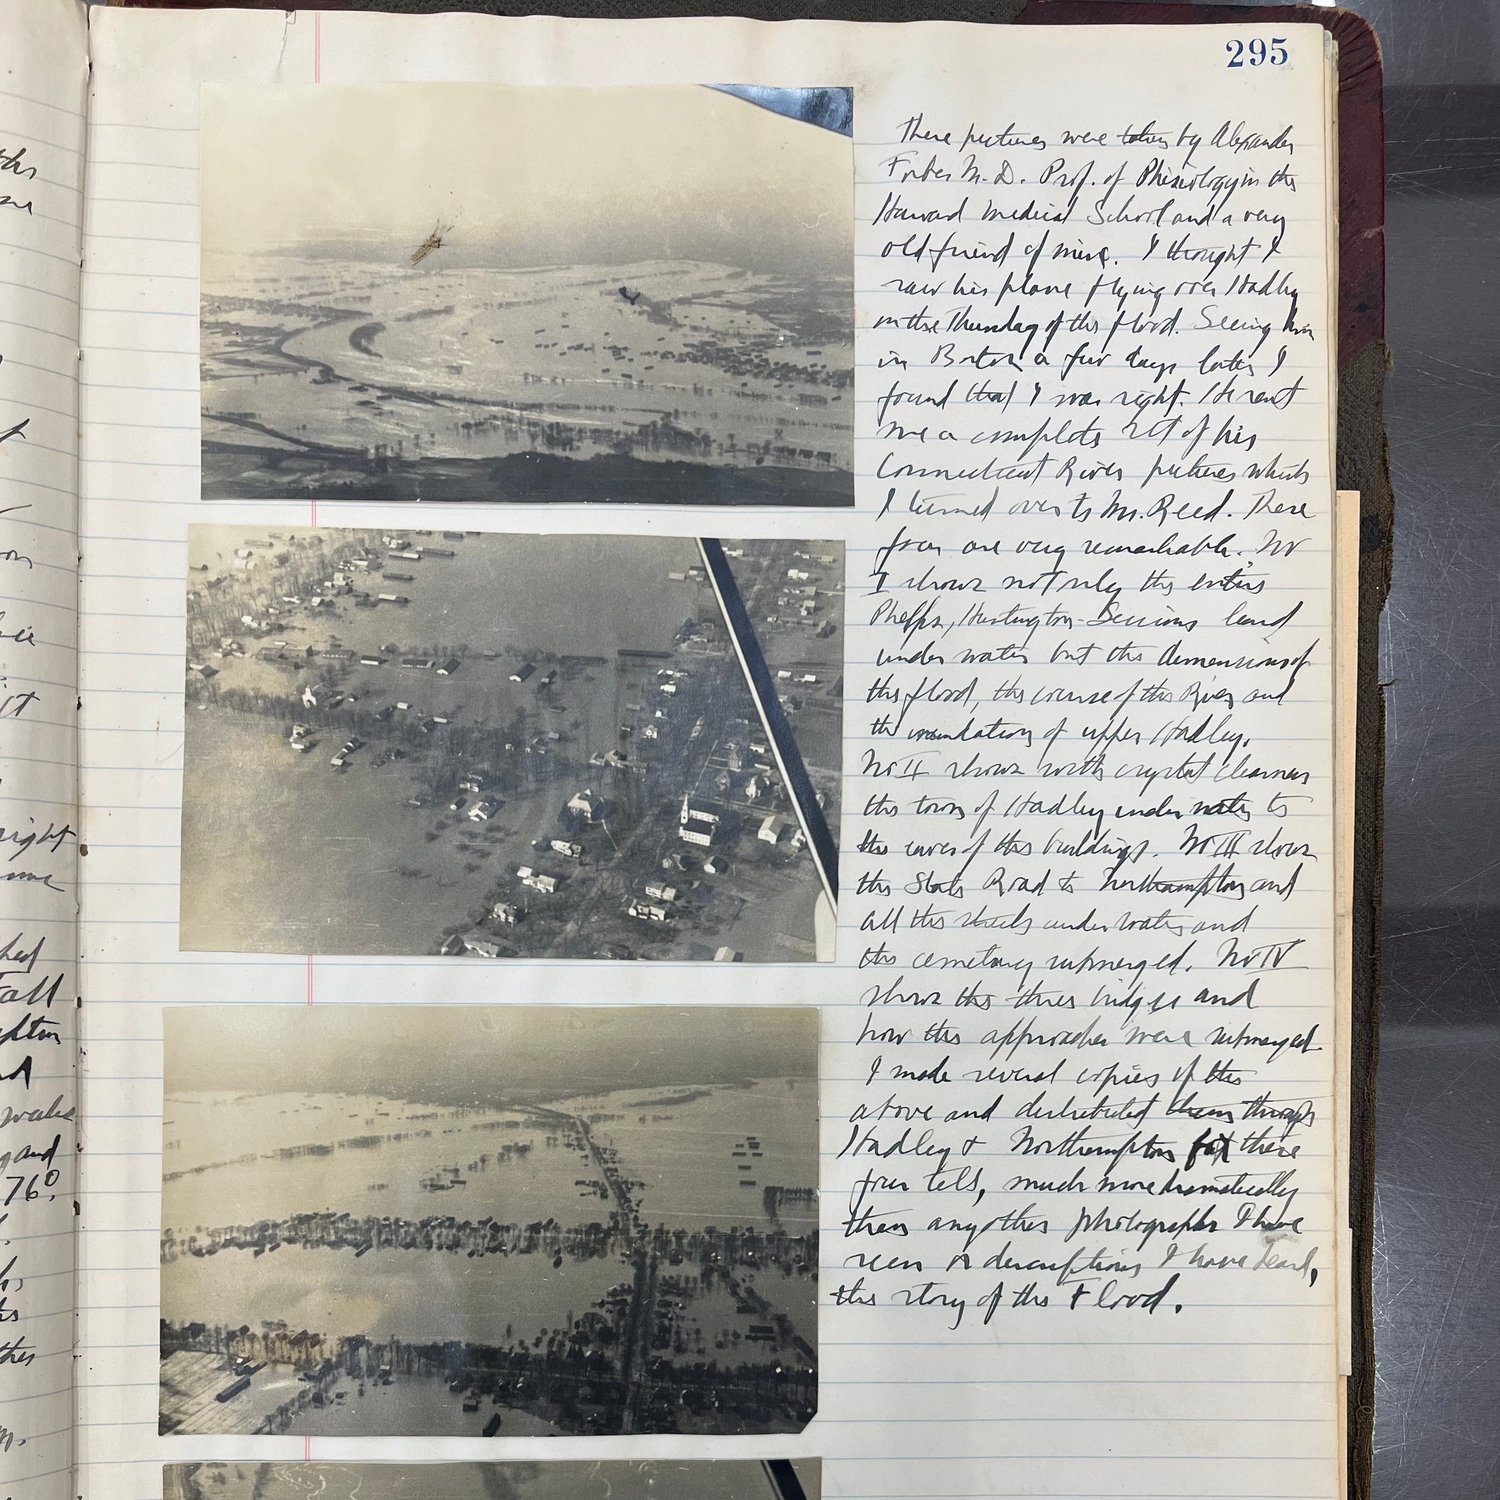 ths
right
hed
Fall
pton
and
76°.
ther
295
These pictures were taken by Alexander
Forbes M.D. Prof. of Phisiology in the
Harvard Medical School and a very
old friend of mine. I thought I
saw his plane flying over Hadley
on the Thursday of the flood. Seeing him
in Boston a few days later I
found that I was right. He sent
me a complete set of his
Connecticut River pictures which
I turned over to Mr. Reed. These
four are very remarkable. No
I shows not only the entire
Phelps, Huntington-Sessions land
under water but the demensions of
the flood, the course of the River and
the inundation of upper Hadley.
No II shows with crystal clearness
the town of Hadley under water to
the eaves of the buildings. No III shows
the State Road to Northampton and
all the streets under water and
the cemetary submerged. No IV
shows the three bridges and
how the approaches were submerged.
I made several copies of the
above and distributed them through
Hadley & Northampton for these
four tell, much more dramatically
than any other photographs I have
seen or descriptions I have heard,
the story of the Flood.